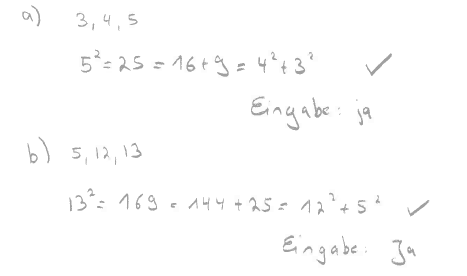 a) 3, 4, 5
5² = 25 = 16 + 9 = 4² + 3² ✓
Eingabe: ja
b) 5, 12, 13
13² = 169 = 144 + 25 = 12² + 5² ✓
Eingabe: Ja